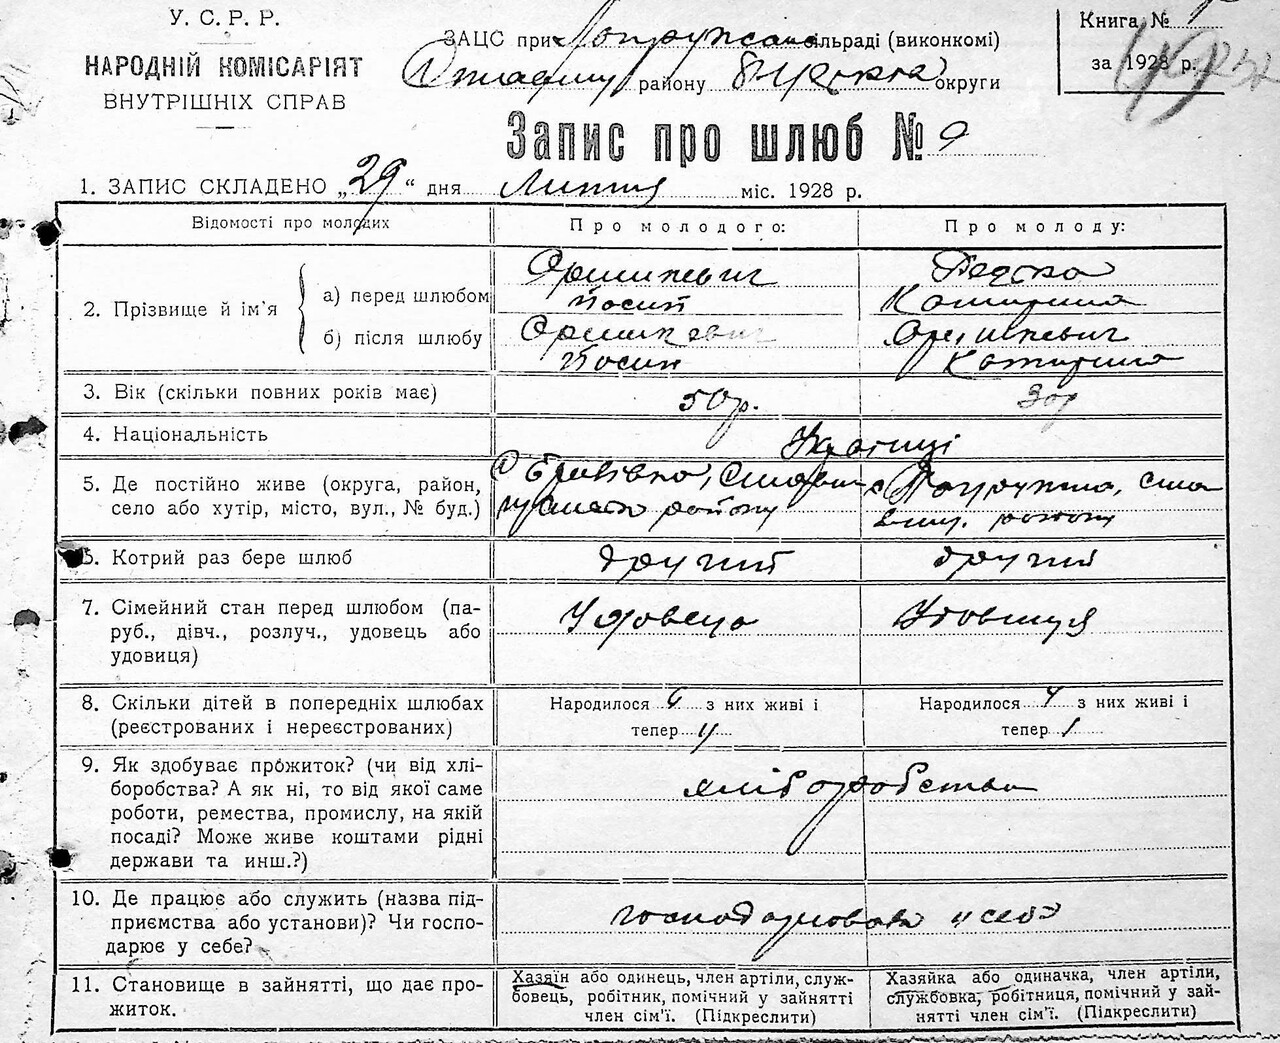 У. С. Р. Р.
НАРОДНІЙ КОМІСАРІЯТ
ВНУТРІШНІХ СПРАВ
ЗАЦС при сільраді (виконкомі)
району округи
Книга №
за 1928 р.
Запис про шлюб № 9
1. ЗАПИС СКЛАДЕНО „29“ дня Липня міс. 1928 р.
Відомості про молодих
Про молодого:
Про молоду:
2. Прізвище й ім'я
а) перед шлюбом
б) після шлюбу
Йосип
Катерина
Йосип
Катерина
3. Вік (скільки повних років має)
50 р.
30 р
4. Національність
Українці
5. Де постійно живе (округа, район,
село або хутір, місто, вул., № буд.)
району
6. Котрий раз бере шлюб
другий
другий
7. Сімейний стан перед шлюбом (па-
руб., дівч., розлуч., удовець або
удовиця)
Удовець
Удовиця
8. Скільки дітей в попередніх шлюбах
(реєстрованих і нереєстрованих)
Народилося 6 з них живі і
тепер 4
Народилося 4 з них живі і
тепер 1
9. Як здобуває прожиток? (чи від хлі-
боробства? А як ні, то від якої саме
роботи, ремества, промислу, на якій
посаді? Може живе коштами рідні
держави та инш.?)
хліборобства
10. Де працює або служить (назва під-
приємства або установи)? Чи госпо-
дарює у себе?
у себе
11. Становище в зайнятті, що дає про-
житок.
Хазяїн або одинець, член артіли, служ-
бовець, робітник, помічний у зайнятті
член сім'ї. (Підкреслити)
Хазяйка або одиначка, член артіли,
службовка, робітниця, помічний у зай-
нятті член сім'ї. (Підкреслити)